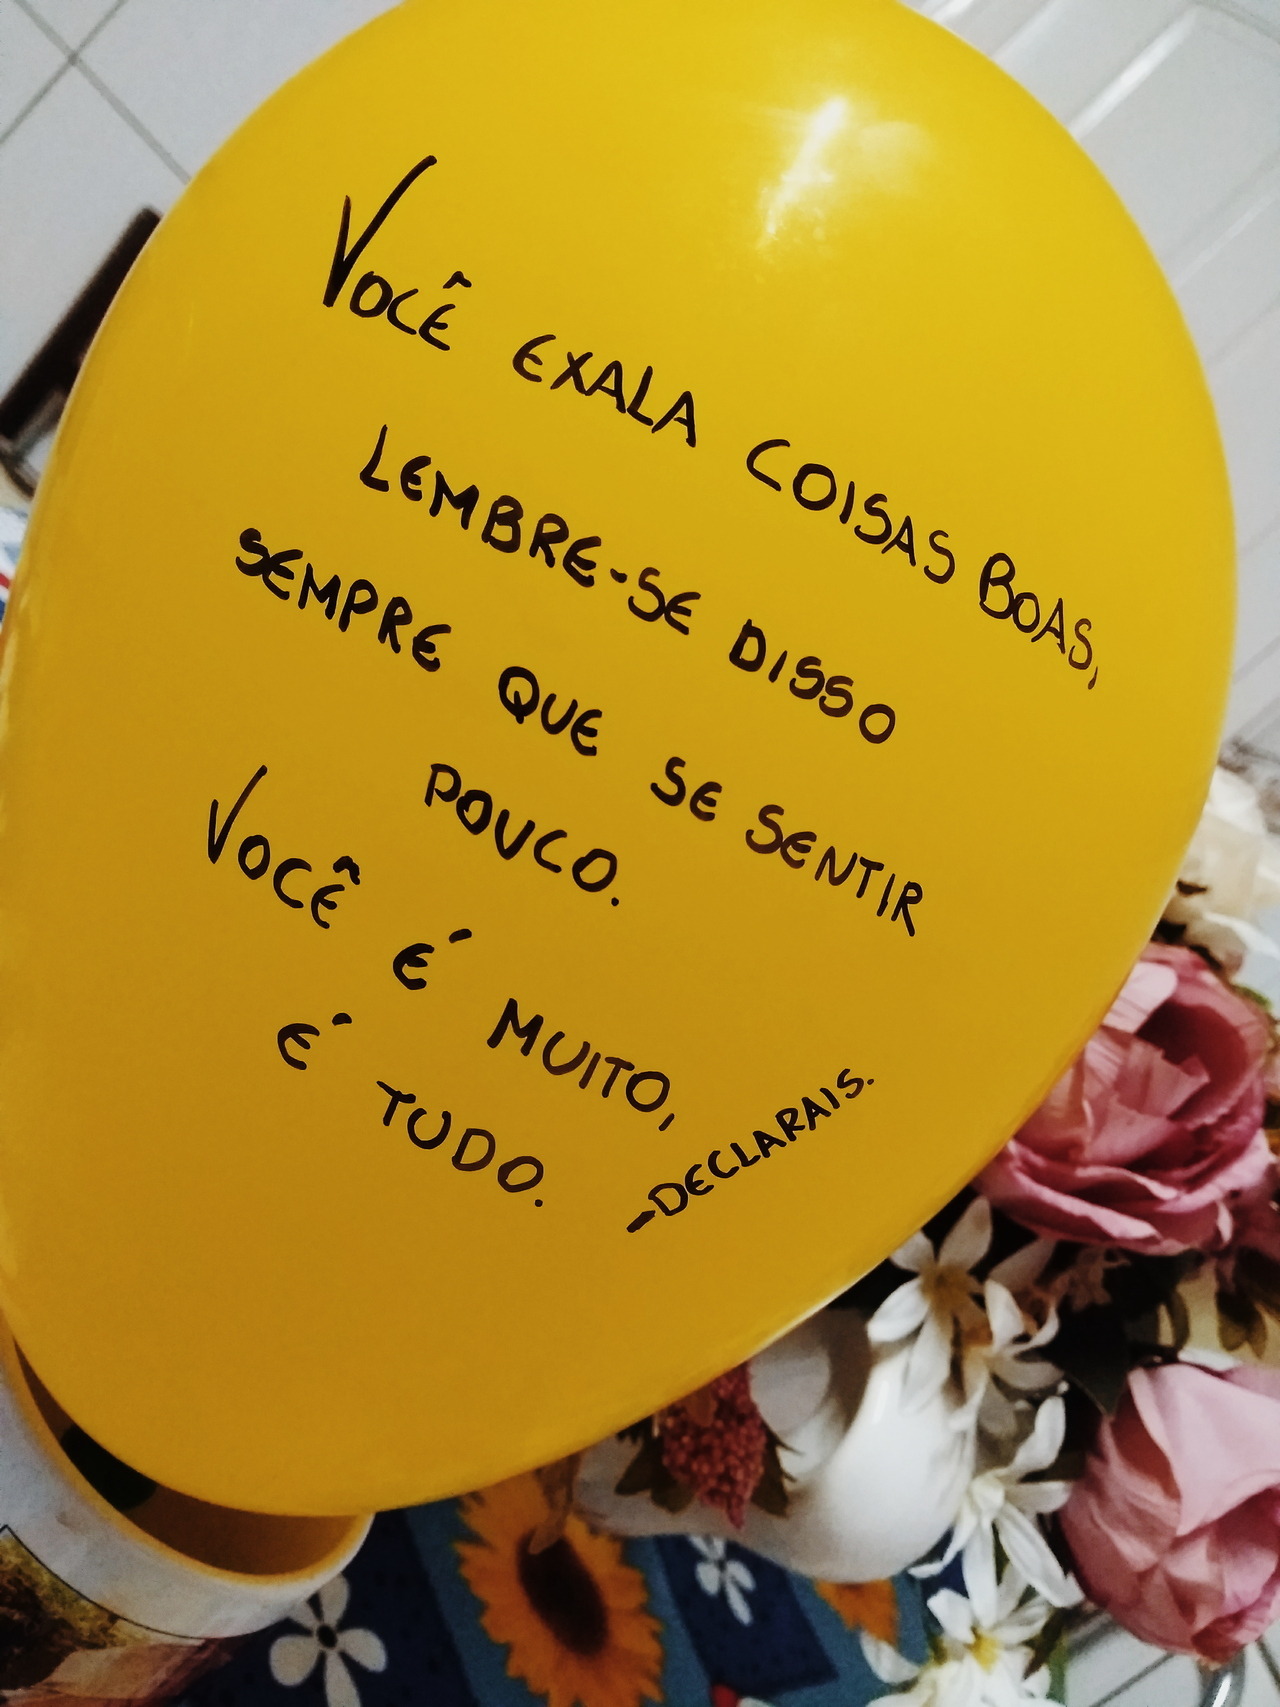 VOCÊ EXALA COISAS BOAS,
LEMBRE-SE DISSO
SEMPRE QUE SE SENTIR
POUCO.
VOCÊ É MUITO,
É TUDO.
-DECLARAIS.